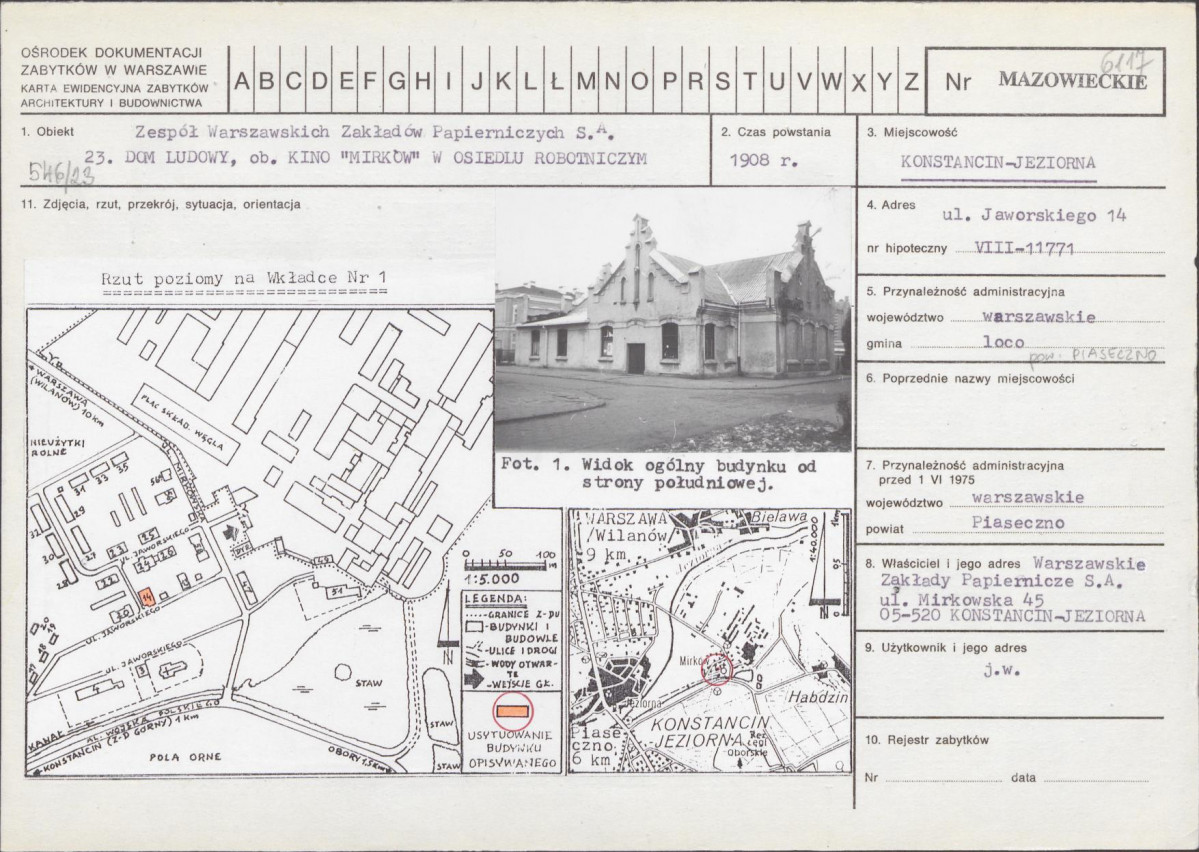 OŚRODEK DOKUMENTACJI
ZABYTKÓW W WARSZAWIE
KARTA EWIDENCYJNA ZABYTKÓW
ARCHITEKTURY I BUDOWNICTWA
A B C D E F G H I J K L Ł M N O P R S T U V W X Y Z
Nr MAZOWIECKIE
6117
1. Obiekt Zespół Warszawskich Zakładów Papierniczych S.A.
23. DOM LUDOWY, ob. KINO "MIRKÓW" W OSIEDLU ROBOTNICZYM
546/23
2. Czas powstania
1908 r.
3. Miejscowość
KONSTANCIN-JEZIORNA
11. Zdjęcia, rzut, przekrój, sytuacja, orientacja
Rzut poziomy na Wkładce Nr 1
4. Adres
ul. Jaworskiego 14
nr hipoteczny VIII-11771
5. Przynależność administracyjna
województwo warszawskie
gmina loco
pow. PIASECZNO
6. Poprzednie nazwy miejscowości
7. Przynależność administracyjna
przed 1 VI 1975
województwo warszawskie
powiat Piaseczno
8. Właściciel i jego adres Warszawskie
Zakłady Papiernicze S.A.
ul. Mirkowska 45
05-520 KONSTANCIN-JEZIORNA
9. Użytkownik i jego adres
j.w.
10. Rejestr zabytków
Nr data
Fot. 1. Widok ogólny budynku od
strony południowej.
WARSZAWA
(WILANÓW) 10 km
PLAC SKŁAD. WĘGLA
NIEUŻYTKI
ROLNE
UL. MIRKOWSKA
31
33
35
29
32
30
28
27
23
25
UL. JAWORSKIEGO
24
26
22
14
20
UL. JAWORSKIEGO
47
49
51
UL. JAWORSKIEGO
4
3
1
STAW
STAW
STAW
KANAŁ
AL. WOJSKA POLSKIEGO
KONSTANCIN (Z-D GÓRNY) 1 km
POLA ORNE
OBORY 1,5 km
0 50 100
m
1:5.000
LEGENDA:
-GRANICE Z-DU
-BUDYNKI I
BUDOWLE
-ULICE I DROGI
-WODY OTWAR-
TE
-WEJŚCIE GŁ.
N
USYTUOWANIE
BUDYNKU
OPISYWANEGO
WARSZAWA
/Wilanów
9 km
Bielawa
Jeziorna
1:40.000
0
0,5
1km
N
Mirków
Jeziorna
Habdzin
KONSTANCIN
JEZIORNA
Piase
czno
6 km
Rez.
cegl
Oborskie